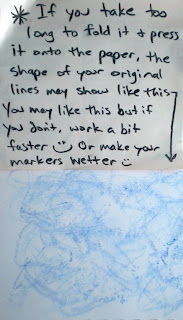 * If you take too
long to fold it & press
it onto the paper, the
shape of your original
lines may show like this
You may like this but if
you don't, work a bit
faster ☺ Or make your
markers wetter ☺